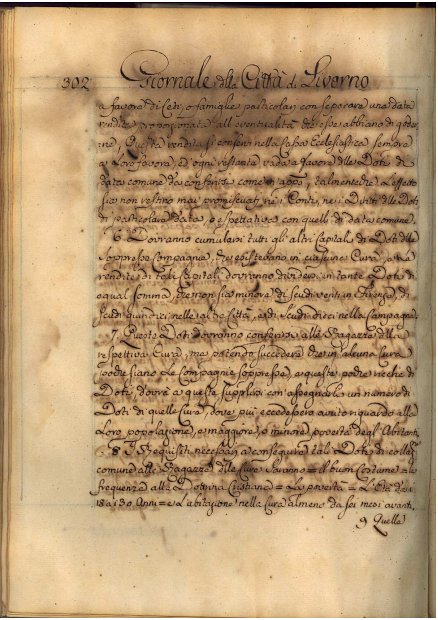 302 Giornale della Città di Livorno
a favore di Ceti, o famiglie particolari con separare una data
rendita proporzionata all'eventualità che esse abbiano di gode-
re, Questa rendita si conservi nella Cassa Ecclesiastica sempre
a loro favore, ed ogni restante vada a favore delle Doti di
data comune da conferirsi come in appo, talmenteche l'effetto
sia non restino mai promiscuati ne i Conti, ne i Diritti delle Doti
di particolare data, o espettativa con quelli di data comune.
6. Dovranno cumularsi tutti gli altri Capitali di Doti delle
Soppresse Compagnie, che esistevano in ciascuna Cura, e la
rendita di tali Capitali dovranno dividersi in tante Doti di
egual somma, che non sia minore di scudi venti in Firenze, di
scudi quindici nelle altre Città, e di scudi dieci nella Campagna.
7. Queste Doti dovranno conferirsi alle Ragazze della
respettiva Cura, ma potendo succedere che in alcuna Cura
po che siano le Compagnie soppresse, o queste poche ricche di
Doti, dovrà a queste supplirsi con assegnarle un numero di
Doti di quelle Cure, dove più eccedessero avuto riguardo alla
Loro popolazione, e maggiore, o minore povertà degl'Abitanti.
8. I Requisiti necessari a conseguire tali Doti di collaz.
comune alle Ragazze delle Cure saranno = Il buon Costume = la
frequenza alla Dottrina Cristiana = La povertà = L'Età dai
18 ai 30 Anni = e L'abitazione nella Cura almeno da sei mesi avanti.
9 Quella